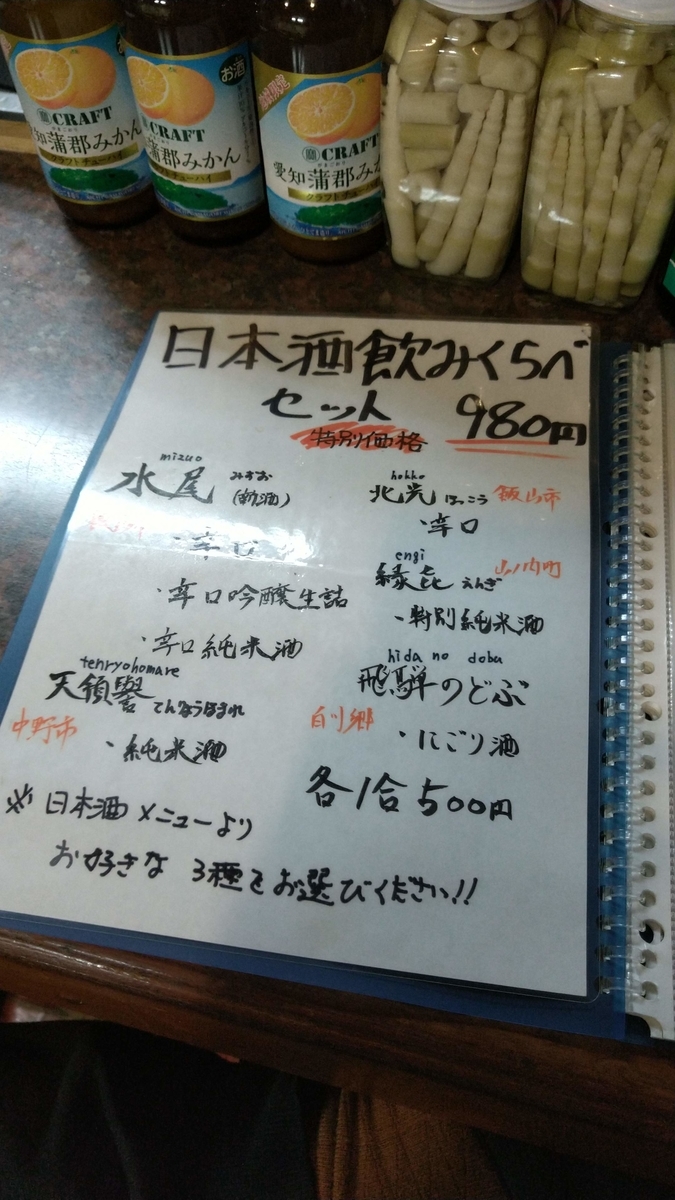 お酒
CRAFT
愛知蒲郡みかん
クラフトチューハイ
CRAFT
知蒲郡みかん
クラフトチューハイ
CRAFT
愛知蒲郡みか
クラフトチューハイ
日本酒飲みくらべ
セット 980円
特別価格
mizuo
水尾 みずお (新酒)
・辛口
・辛口吟醸生詰
・辛口純米酒
tenryohomare
天領譽 てんりょうほまれ
中野市
・純米酒
hokko
北光 ほっこう 飯山市
・辛口
engi
縁㐂 えんぎ 山ノ内町
・特別純米酒
hida no dobu
飛騨のどぶ
白川郷
・にごり酒
各1合500円
※日本酒メニューより
お好きな 3種をお選びください!!